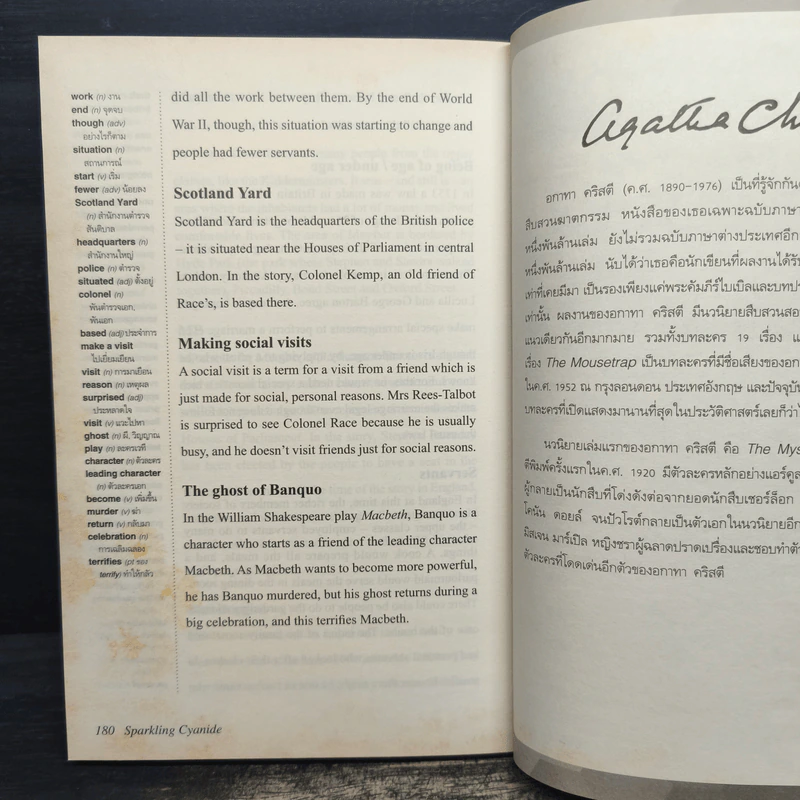 work (n) งาน
end (n) จุดจบ
though (adv)
อย่างไรก็ตาม
situation (n)
สถานการณ์
start (v) เริ่ม
fewer (adv) น้อยลง
Scotland Yard
(n) สำนักงานตำรวจ
สันติบาล
headquarters (n)
สำนักงานใหญ่
police (n) ตำรวจ
situated (adj) ตั้งอยู่
colonel (n)
พันตำรวจเอก,
พันเอก
based (adj) ประจำการ
make a visit
ไปเยี่ยมเยือน
visit (n) การมาเยือน
reason (n) เหตุผล
surprised (adj)
ประหลาดใจ
visit (v) แวะไปหา
ghost (n) ผี, วิญญาณ
play (n) ละครเวที
character (n) ตัวละคร
leading character
(n) ตัวละครเอก
become (v) เพิ่มขึ้น
murder (v) ฆ่า
return (v) กลับมา
celebration (n)
การเฉลิมฉลอง
terrifies (pt ของ
terrify) ทำให้กลัว
did all the work between them. By the end of World
War II, though, this situation was starting to change and
people had fewer servants.
Scotland Yard
Scotland Yard is the headquarters of the British police
– it is situated near the Houses of Parliament in central
London. In the story, Colonel Kemp, an old friend of
Race's, is based there.
Making social visits
A social visit is a term for a visit from a friend which is
just made for social, personal reasons. Mrs Rees-Talbot
is surprised to see Colonel Race because he is usually
busy, and he doesn't visit friends just for social reasons.
The ghost of Banquo
In the William Shakespeare play Macbeth, Banquo is a
character who starts as a friend of the leading character
Macbeth. As Macbeth wants to become more powerful,
he has Banquo murdered, but his ghost returns during a
big celebration, and this terrifies Macbeth.
180 Sparkling Cyanide
Agatha Ch
อกาทา คริสตี (ค.ศ. 1890-1976) เป็นที่รู้จักกัน
สืบสวนฆาตกรรม หนังสือของเธอเฉพาะฉบับภาษา
หนึ่งพันล้านเล่ม ยังไม่รวมฉบับภาษาต่างประเทศอีก
หนึ่งพันล้านเล่ม นับได้ว่าเธอคือนักเขียนที่ผลงานได้รับ
เท่าที่เคยมีมา เป็นรองเพียงแค่พระคัมภีร์ไบเบิลและบทประ
เท่านั้น ผลงานของอกาทา คริสตี มีนวนิยายสืบสวนสอ
แนวเดียวกันอีกมากมาย รวมทั้งบทละคร 19 เรื่อง แ
เรื่อง The Mousetrap เป็นบทละครที่มีชื่อเสียงของอก
ในค.ศ. 1952 ณ กรุงลอนดอน ประเทศอังกฤษ และปัจจุบัน
บทละครที่เปิดแสดงมานานที่สุดในประวัติศาสตร์เลยก็ว่าไ
นวนิยายเล่มแรกของอกาทา คริสตี คือ The Mys
ตีพิมพ์ครั้งแรกในค.ศ. 1920 มีตัวละครหลักอย่างแอร์คูล
ผู้กลายเป็นนักสืบที่โด่งดังต่อจากยอดนักสืบเชอร์ล็อก
โคนัน ดอยล์ จนปัวโรต์กลายเป็นตัวเอกในนวนิยายอีก
มิสเจน มาร์เปิล หญิงชราผู้ฉลาดปราดเปรื่องและชอบทำตัว
ตัวละครที่โดดเด่นอีกตัวของอกาทา คริสตี